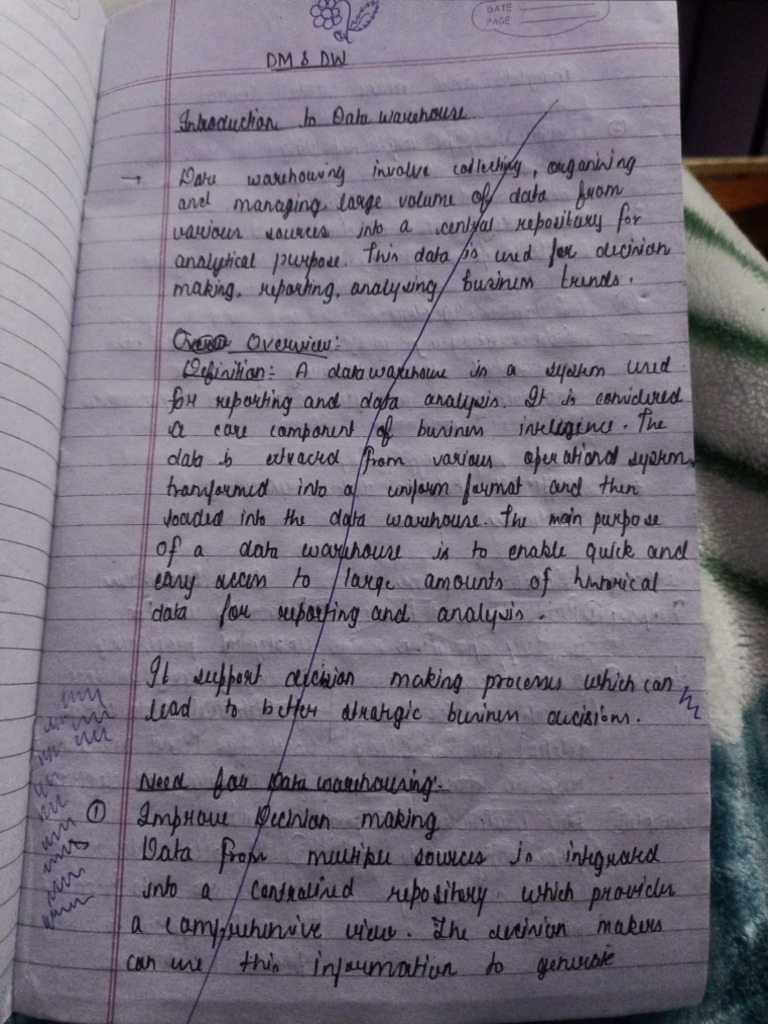 DATE
PAGE
DM & DW
Introduction to Data warehouse
→ Data warehousing involve collecting, organising
and managing large volume of data from
various sources into a central repositary for
analytical purpose. This data is used for decision
making, reporting, analysing business trends.
Overview:
Definition:- A data warehouse is a system used
for reporting and data analysis. It is considered
a core component of business intelligence. The
data is extracted from various operational system,
transformed into a uniform format and then
loaded into the data warehouse. The main purpose
of a data warehouse is to enable quick and
easy access to large amounts of historical
data for reporting and analysis.
It support decision making process which can
lead to better strategic business decisions.
Need for Data warehousing:-
① Improve Decision making
Data from multiple sources is integrated
into a centralized repository which provides
a comprehensive view. The decision makers
can use this information to generate